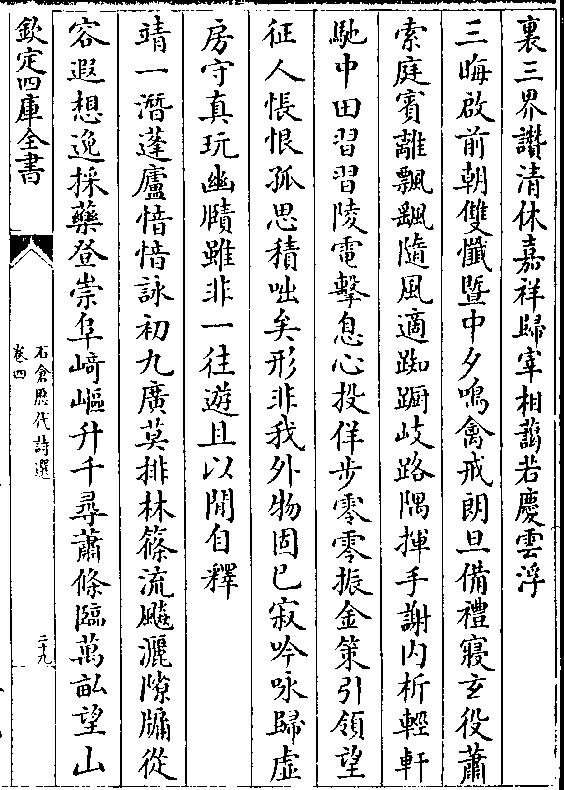 裏三界讚清休嘉祥歸宰相藹若慶雲浮
三晦啟前朝雙懺暨中夕鳴禽戒朗旦備禮寢玄役蕭
索庭賓離飄飖隨風適踟蹰岐路隅揮手謝内析輕軒
馳中田習習陵電擊息心投佯步零零振金策引領望
征人悵恨孤思積咄矣形非我外物固已寂吟咏歸虛
房守真玩幽賾雖非一往遊且以閒自釋
靖一潛蓬廬愔愔詠初九廣莫排林篠流飈灑隙牖從
容遐想逸採藥登崇阜崎嶇升千尋蕭條臨萬畝望山
欽定四庫全書
石倉歷代詩選
卷四
二十九